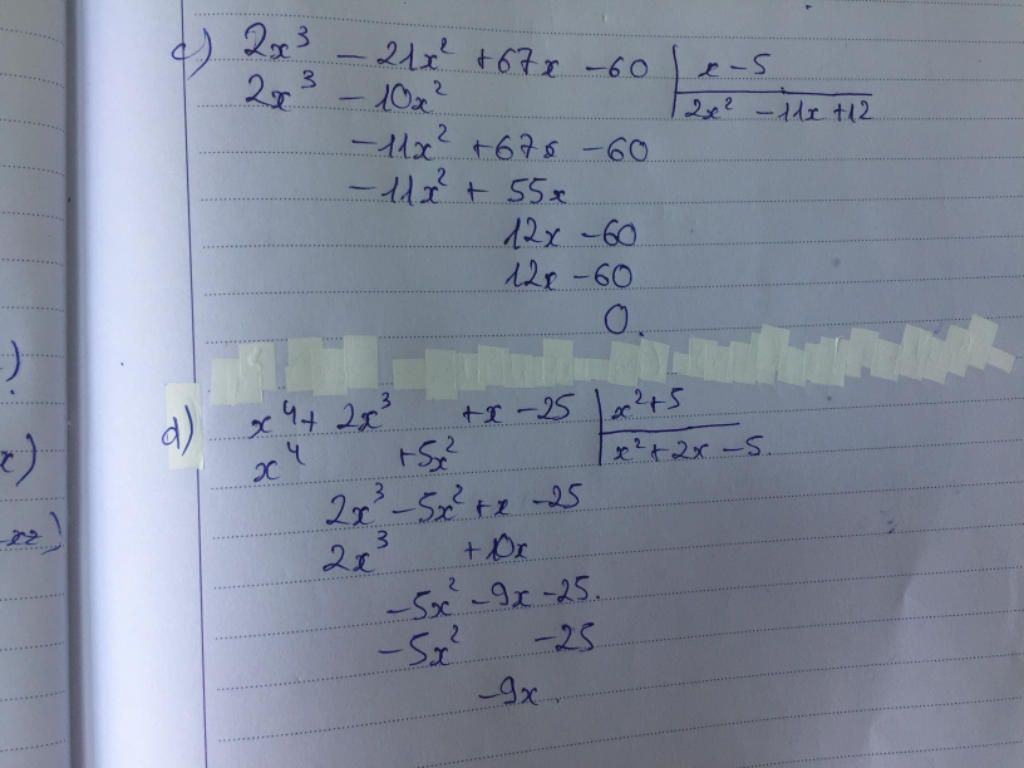 c) 2x³ − 21x² + 67x − 60 | x − 5
2x³ − 10x² | 2x² − 11x + 12
−11x² + 67x − 60
−11x² + 55x
12x − 60
12x − 60
0.
d) x⁴ + 2x³ + x − 25 | x² + 5
x⁴ + 5x² | x² + 2x − 5.
2x³ − 5x² + x − 25
2x³ + 10x
−5x² − 9x − 25.
−5x² − 25
−9x.
)
x)
-xz)